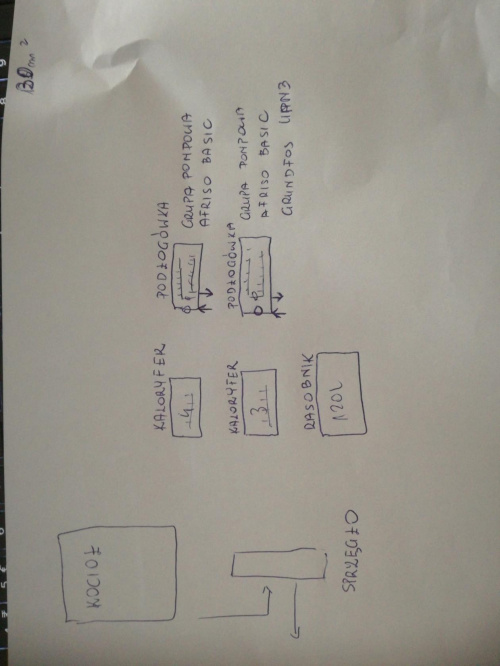 130m²
KOCIOŁ
KALORYFER
4
PODŁOGÓWKA
GRUPA POMPOWA
AFRISO BASIC
KALORYFER
3
PODŁOGÓWKA
GRUPA POMPOWA
AFRISO BASIC
GRUNDFOS UPM3
ZASOBNIK
120L
SPRZĘGŁO